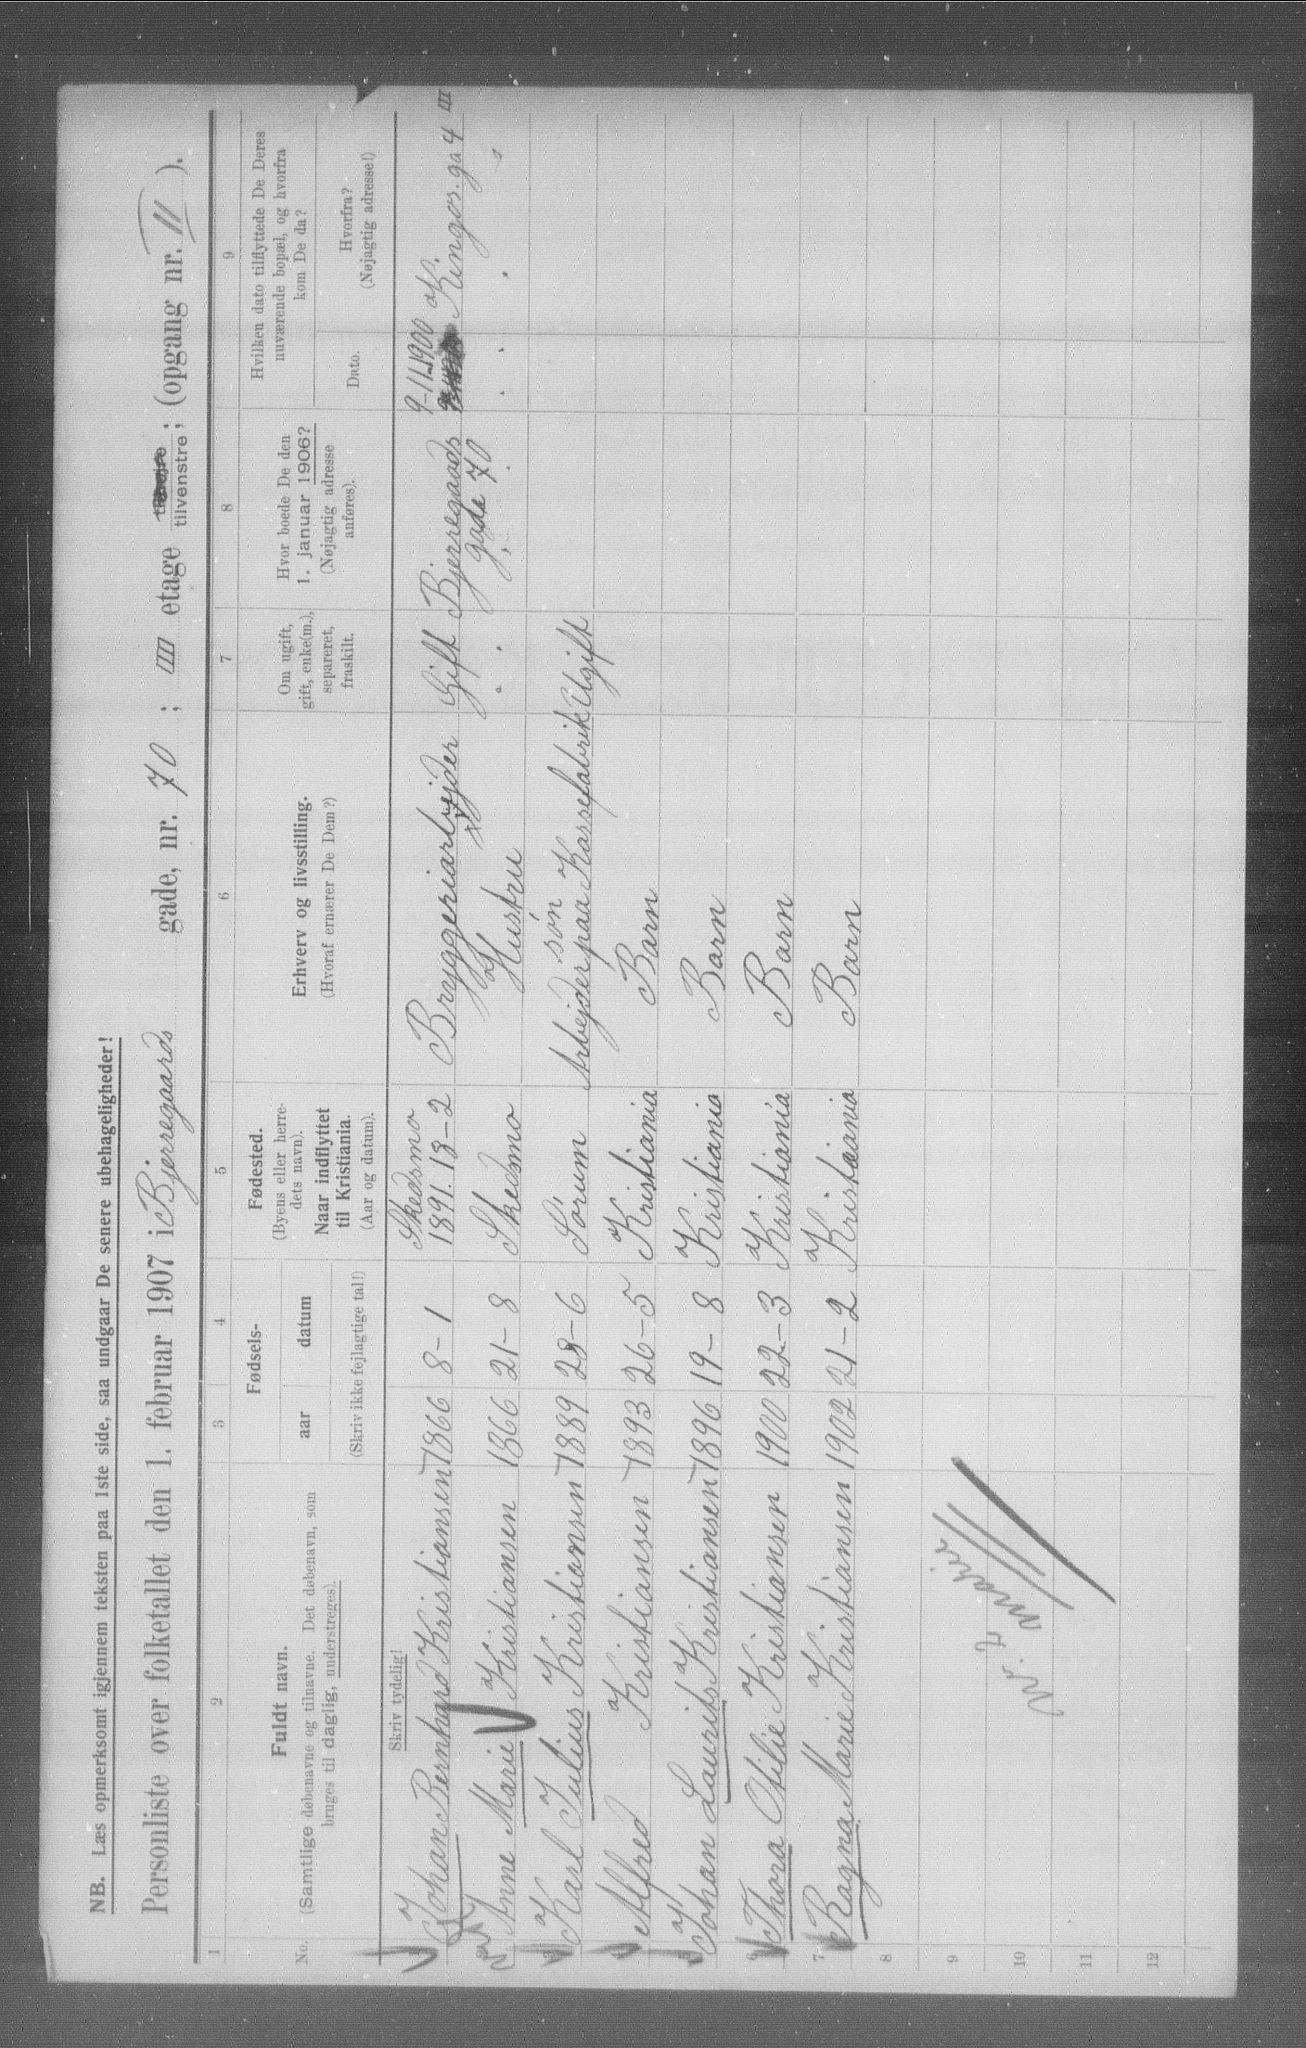 NB. Læs opmerksomt igjennem teksten paa 1ste side, saa undgaar De senere ubehageligheder!
Personliste over folketallet den 1. februar 1907 i Bjerregaards gade, nr. 70 ; III etage tilvenstre ; (opgang nr. II ).
1 2 3 4 5 6 7 8 9
No. Fuldt navn. (Samtlige døbenavne og tilnavne. Det døbenavn, som bruges til daglig, understreges).
Fødsels-
aar datum
(Skriv ikke fejlagtige tal!)
Fødested. (Byens eller herredets navn). Naar indflyttet til Kristiania. (Aar og datum).
Erhverv og livsstilling. (Hvoraf ernærer De Dem?)
Om ugift, gift, enke(m.), separeret, fraskilt.
Hvor boede De den 1. januar 1906? (Nøjagtig adresse anføres).
Hvilken dato tilflyttede De Deres nuværende bopæl, og hvorfra kom De da?
Dato. Hvorfra? (Nøjagtig adresse!)
Skriv tydelig!
Johan Bernhard Kristiansen 1866 8-1 Skedsmo 1891. 13-2 Bryggeriarbejder Gift Bjerregaards gade 70 9-11-1900 Kingos. ga 4 III
Anne Marie Kristiansen 1866 21-8 Skedsmo Hustru
Karl Julius Kristiansen 1889 28-6 Sørum søn Arbejder paa Kassefabrik Ugift
Alfred Kristiansen 1893 26-5 Kristiania Barn
Johan Laurits Kristiansen 1896 19-8 Kristiania Barn
6 Thora Otilie Kristiansen 1900 22-3 Kristiania Barn
7 Ragna Marie Kristiansen 1902 21-2 Kristiania Barn
8
9
10
11
12